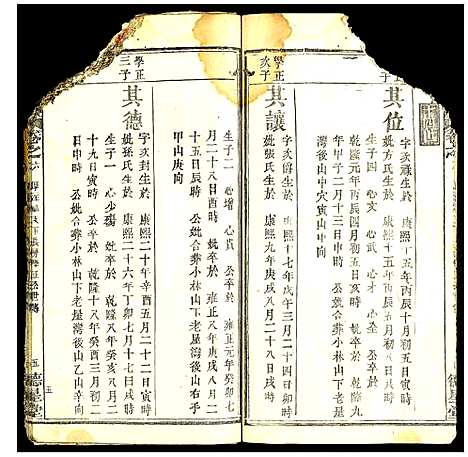 正學
子
其位
字亥祿生於 康熙十五年丙辰十月初五日寅時
妣方氏生於 康熙十五年丙辰五月初五日辰時
生子四 心文 心武 心才 心圣 公卒於
乾隆元年丙辰四月初五日寅時 妣卒於
年甲子二月十三日申時 公妣合葬小林山下老屋
灣後山中穴寅山申向
正學
次子
其讓
字亥爵生於 康熙十七年戊午三月二十四日寅時
妣張氏生於 康熙九年庚戌八月二十八日戌時
生子二 心增 心貴 公卒於 雍正元年癸卯七
月二十八日寅時 妣卒於 雍正八年庚戌八月二
十五日辰時 公妣合葬小林山下老屋灣後山右手
甲山庚向
正學
三子
其德
字亥封生於 康熙二十年辛酉五月二十日寅時
妣孫氏生於 康熙二十六年丁卯七月十七日戌時
生子一 心少殤 妣卒於 乾隆八年癸亥八月二
十九日寅時 公卒於 乾隆十八年癸酉三月初二
日申時 公妣合葬小林山下老屋灣後山乙山辛向
五
五
德星堂
德星堂